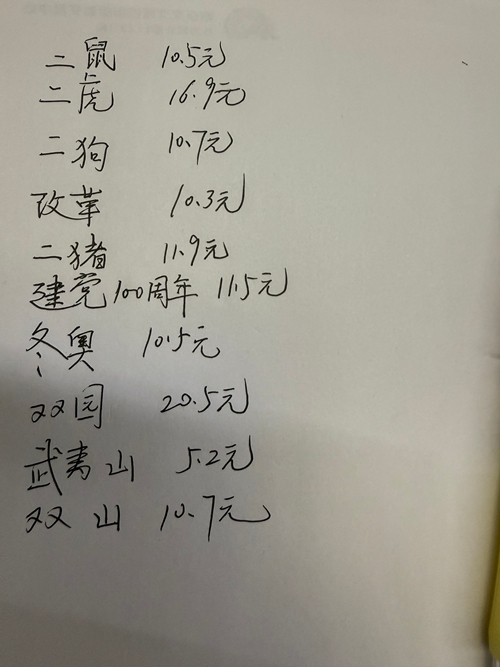 二鼠 10.5元
二虎 16.9元
二狗 10.7元
改革 10.3元
二猪 11.9元
建党100周年 11.5元
冬奥 10.5元
双园 20.5元
武夷山 5.2元
双山 10.7元